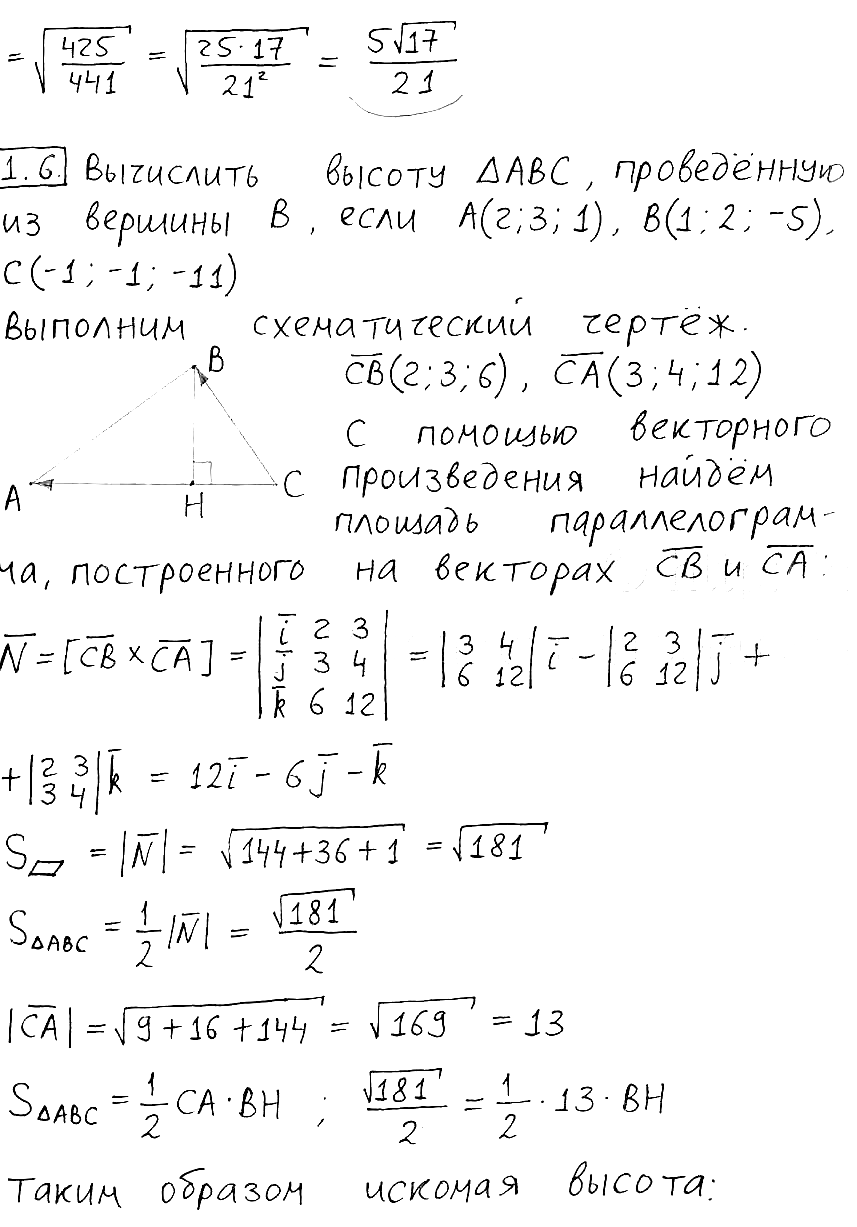 = √(425/441) = √(25·17/21²) = 5√17/21
1.6. Вычислить высоту ΔABC, проведённую
из вершины B, если A(2;3;1), B(1;2;-5),
C(-1;-1;-11)
Выполним схематический чертёж.
B
A
H
C
C̅B̅(2;3;6), C̅A̅(3;4;12)
С помощью векторного
произведения найдём
площадь параллелограм-
ма, построенного на векторах C̅B̅ и C̅A̅:
N̅ = [C̅B̅ × C̅A̅] = |i̅ 2 3; j̅ 3 4; k̅ 6 12| = |3 4; 6 12| i̅ - |2 3; 6 12| j̅ +
+ |2 3; 3 4| k̅ = 12i̅ - 6j̅ - k̅
S▱ = |N̅| = √(144+36+1) = √181
SΔABC = 1/2 |N̅| = √181/2
|C̅A̅| = √(9+16+144) = √169 = 13
SΔABC = 1/2 CA·BH ; √181/2 = 1/2 · 13 · BH
Таким образом искомая высота: